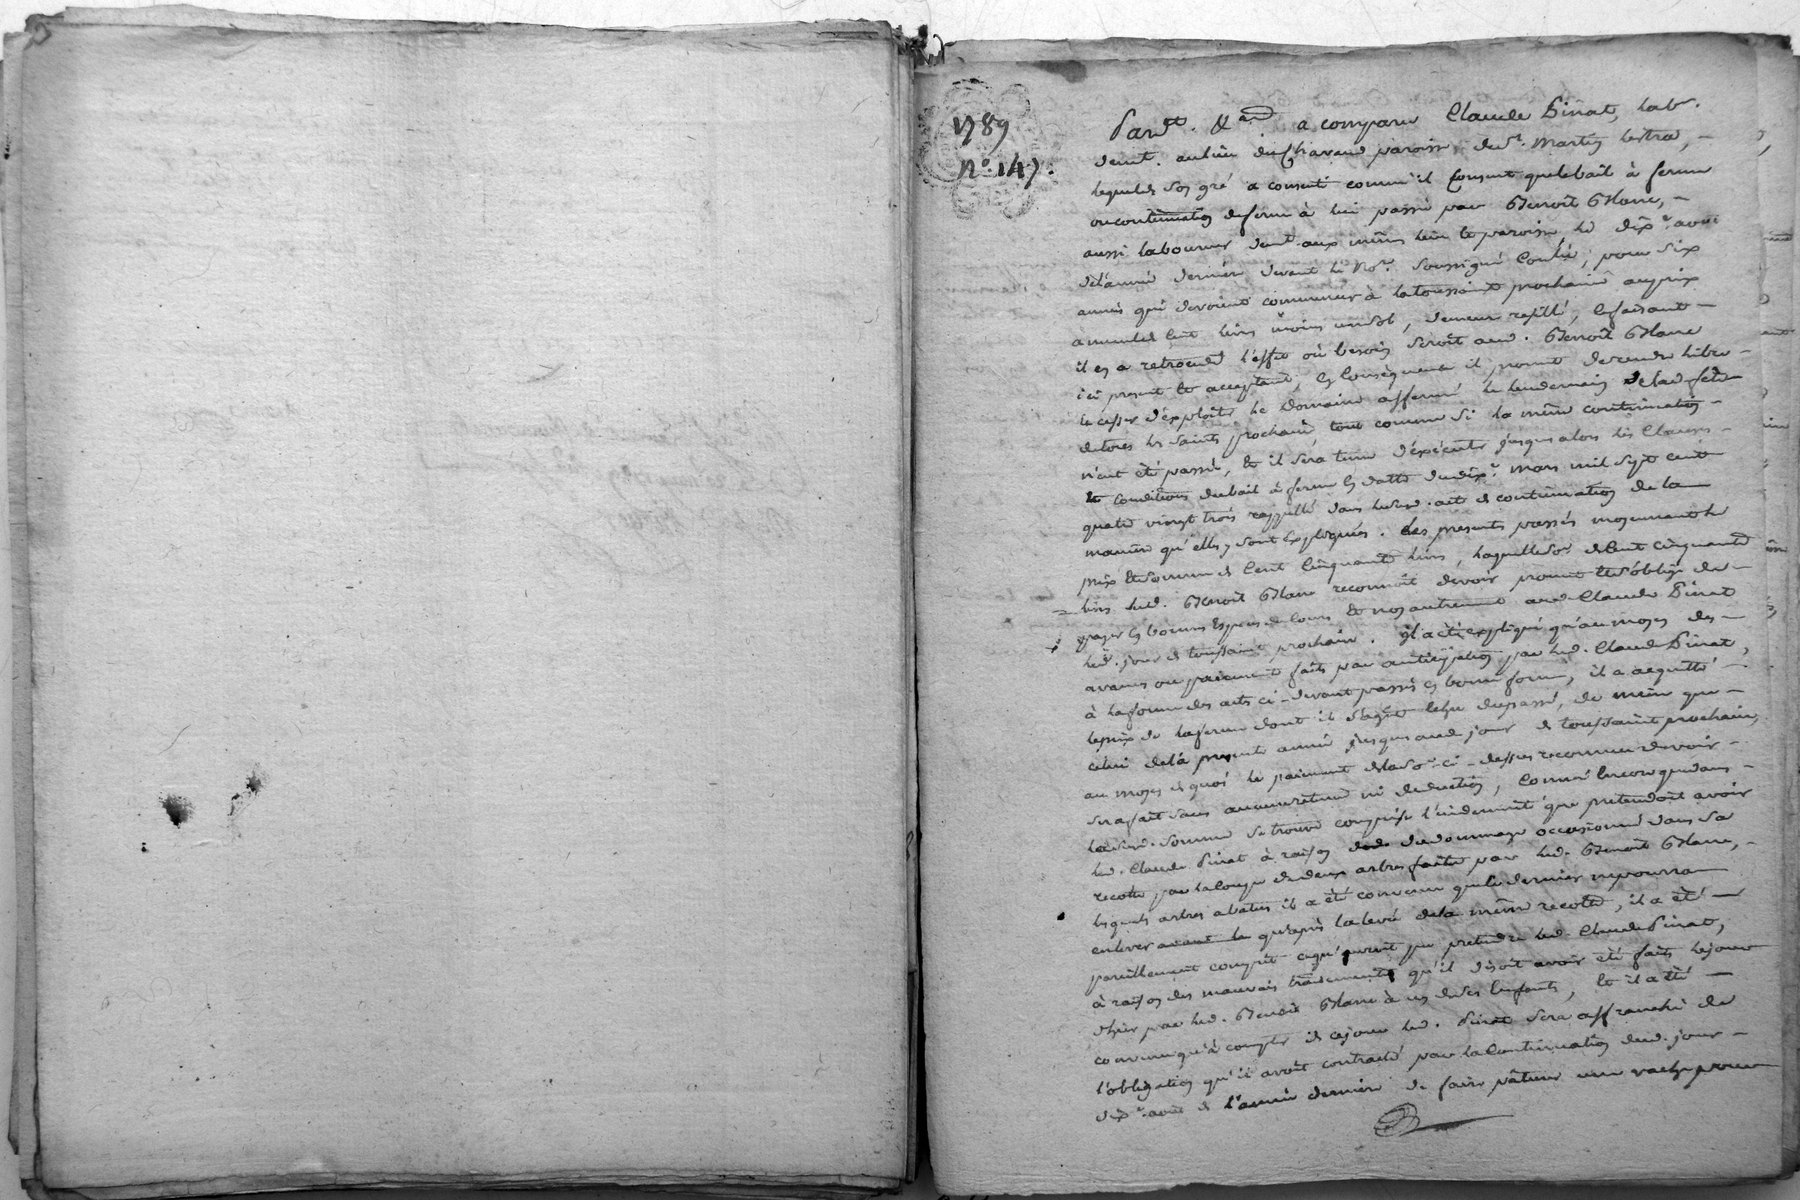 1789
N.º 147.
Pard.t &a.nd a comparu Claude Pinat, lab.r
demt. au lieu du Chavand paroisse de St. Martin lestra, -
lequel de son gré a consenti comme il consent que le bail à ferme
ou continuation de ferme à lui passé par Benoît Blanc, -
aussi laboureur demt. aux mêmes lieu et paroisse le dix.e aout
de l'année dernière devant le No.re soussigné Conlé, pour six
années qui devoient commencer à la toussaint prochaine au prix
annuel de cent livres moins un sol, demeure resillié, ce faisant -
il en a retrocedé l'effet où besoin seroit aud. Benoît Blanc
ici present et acceptant, en consequence il promet de rendre libre -
et cesser d'exploiter le Domaine affermé le lendemain de la fête
de tous les saints prochaine tout comme si la même continuation -
n'eut été passée, et il sera tenu d'exécuter jusques alors les Clauses -
et conditions du bail à ferme en datte du dix.e mars mil sept cent
quatre vingt trois rappellé dans led. act de continuation de la
maniere qu'elles y sont expliquées. Les presentes passées moyennant le
prix et somme de cent cinquante livres, laquelle so.e de cent cinquante
livres led. Benoît Blanc reconnoit devoir promet et s'oblige de -
payer en bonnes especes de cours et non autrement aud. Claude Pinat
led. jour de toussaint prochain. Il a été expliqué qu'au moyen des -
avances ou paiement faits par anticipation par led. Claude Pinat,
à la forme des acts ci-devant passés en bonne forme, il a acquitté -
le prix de la ferme dont il s'agit et du passé, de même que -
celui de la presente année jusques aud. jour de toussaint prochain,
au moyen de quoi le paiement de la so.e ci-dessus reconnue devoir -
sera fait sans aucune retenue ni deduction, comme encore que dans -
lad. somme se trouve comprise l'indemnité que pretendoit avoir
led. Claude Pinat à raison du dommage occasionné dans sa
recolte par la coupe de deux arbres faite par led. Benoît Blanc, -
lesquels arbres abatus il a été convenu que le dernier ne pourra
enlever qu'après la levée de la même recolte, il a été -
pareillement compris ce qu'auroit pu pretendre led. Claude Pinat,
à raison des mauvais traitements qu'il disoit avoir été faits le jour
d'hier par led. Benoît Blanc à un de ses enfants, et il a été -
convenu qu'à compter de ce jour led. Pinat sera affranchi de
l'obligation qu'il avoit contracté par la continuation dud. jour -
dix.e aout de l'année dernière de faire pâturer une vache pour